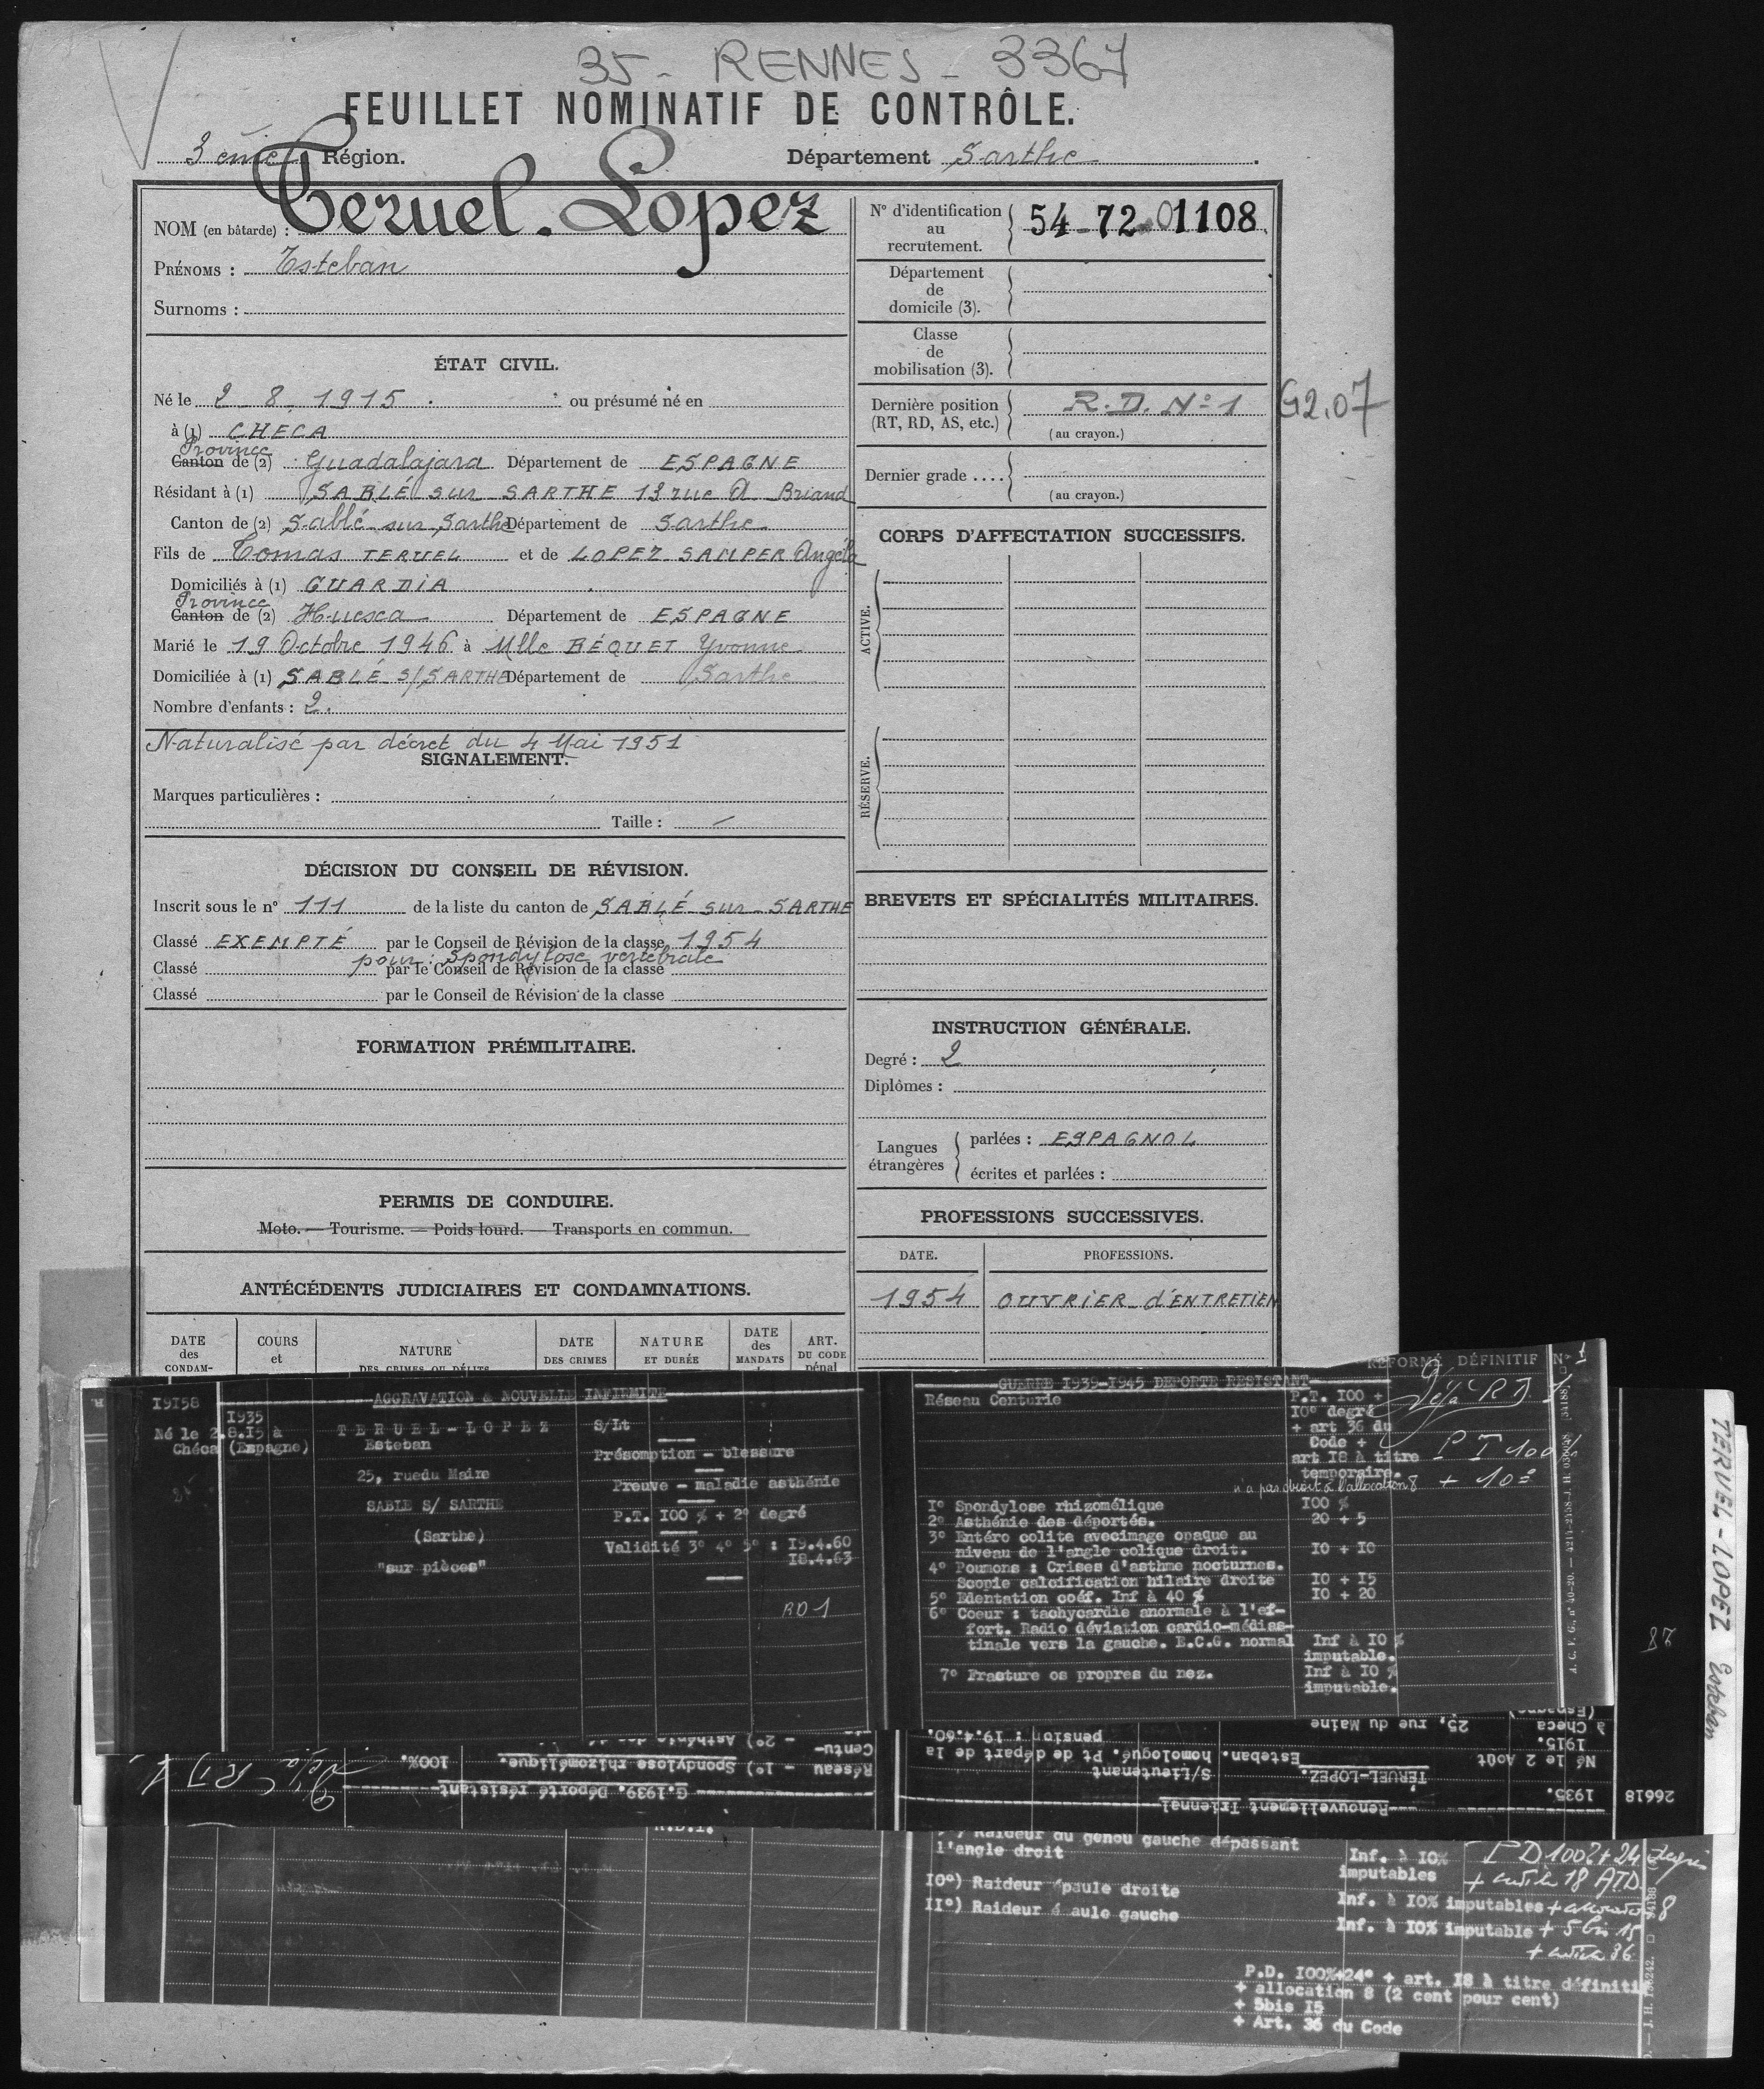 35 - RENNES - 3367
FEUILLET NOMINATIF DE CONTRÔLE.
3ème Région.
Département Sarthe
NOM (en bâtarde) : Teruel-Lopez
PRÉNOMS : Esteban
Surnoms :
ÉTAT CIVIL.
Né le 2 8 1915 ou présumé né en
à (1) CHECA
Province
Canton de (2) Guadalajara Département de ESPAGNE
Résidant à (1) SABLÉ sur SARTHE 13 rue A Briand
Canton de (2) Sablé sur Sarthe Département de Sarthe
Fils de Tomas TERUEL et de LOPEZ SAMPER Angéla
Domiciliés à (1) GUARDIA
Province
Canton de (2) Huesca Département de ESPAGNE
Marié le 19 Octobre 1946 à Mlle BÉQUET Yvonne
Domiciliée à (1) SABLÉ S/SARTHE Département de Sarthe
Nombre d'enfants : 2.
Naturalisé par décret du 4 Mai 1951
SIGNALEMENT.
Marques particulières :
Taille : —
DÉCISION DU CONSEIL DE RÉVISION.
Inscrit sous le n° 111 de la liste du canton de SABLÉ sur SARTHE
Classé EXEMPTÉ par le Conseil de Révision de la classe 1954
pour : Spondylose vertébrale
Classé par le Conseil de Révision de la classe
Classé par le Conseil de Révision de la classe
FORMATION PRÉMILITAIRE.
PERMIS DE CONDUIRE.
Moto. — Tourisme. — Poids lourd. — Transports en commun.
ANTÉCÉDENTS JUDICIAIRES ET CONDAMNATIONS.
DATE des CONDAM-
COURS et
NATURE DES CRIMES OU DÉLITS
DATE DES CRIMES
NATURE ET DURÉE
DATE des MANDATS
ART. DU CODE pénal
N° d'identification au recrutement. 54-72-01108
Département de domicile (3).
Classe de mobilisation (3).
Dernière position (RT, RD, AS, etc.) R.D. N°1
G2.07
(au crayon.)
Dernier grade ....
(au crayon.)
CORPS D'AFFECTATION SUCCESSIFS.
ACTIVE.
RÉSERVE.
BREVETS ET SPÉCIALITÉS MILITAIRES.
INSTRUCTION GÉNÉRALE.
Degré : 2
Diplômes :
Langues étrangères
parlées : ESPAGNOL
écrites et parlées :
PROFESSIONS SUCCESSIVES.
DATE. PROFESSIONS.
1954 OUVRIER d'ENTRETIEN
RÉFORMÉ DÉFINITIF N° 1
19158
AGGRAVATION & NOUVELLE INFIRMITE
1935
Né le 2.8.15 à
Chéca (Espagne)
TERUEL-LOPEZ
Esteban
25, ruedu Maine
SABLE S/ SARTHE
(Sarthe)
"sur pièces"
S/Lt
Présomption - blessure
Preuve - maladie asthénie
P.T. 100 % + 2° degré
Validité 3° 4° 5° : 19.4.60
18.4.63
RD 1
GUERRE 1939-1945 DEPORTE RESISTANT
Réseau Centurie
P.T. 100 +
10° degré
+ art 36 du
Code +
art 18 à titre
temporaire.
n'a pas droit à l'allocation 8
Déjà RD 1
PT 100%
+ 10°
1° Spondylose rhizomélique 100 %
2° Asthénie des déportés. 20 + 5
3° Entéro colite avecimage opaque au
niveau de l'angle colique droit. 10 + 10
4° Poumons : Crises d'asthme nocturnes.
Scopie calcification hilaire droite 10 + 15
5° Edentation coéf. Inf à 40 % 10 + 20
6° Coeur : tachycardie anormale à l'ef-
fort. Radio déviation cardio-médias-
tinale vers la gauche. E.C.G. normal Inf à 10 %
imputable.
7° Fracture os propres du nez. Inf à 10 %
imputable.
TERUEL-LOPEZ Esteban
87
26618
1935.
Né le 2 Août
1915.
à Checa
(Espagne)
Renouvellement Triennal
TERUEL-LOPEZ.
Esteban.
25, rue du Maine
S/Lieutenant
homologué. Pt de départ de la
pension : 19.4.60.
G.1939. Déporté résistant
Réseau - 1°) Spondylose rhizomélique. 100%.
Centu-
Déjà RD 1
Raideur du genou gauche dépassant
l'angle droit Inf. à 10%
imputables
10°) Raideur épaule droite Inf. à 10% imputables
11°) Raideur é aule gauche Inf. à 10% imputable
PD 100% + 24 degrés
+ article 18 ATD
+ allocation 8
+ 5 bis 15
+ article 36
P.D. 100%+24° + art. 18 à titre définitif
+ allocation 8 (2 cent pour cent)
+ 5bis 15
+ Art. 36 du Code